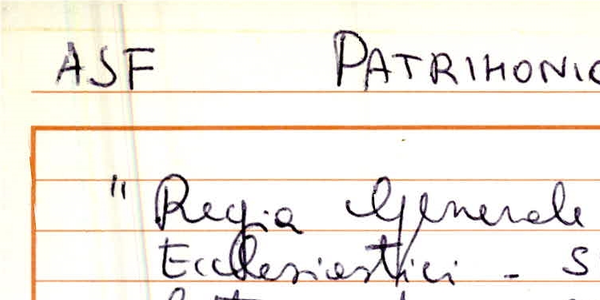 ASF PATRIMONIO
"Regia Generale
Ecclesiastici - S